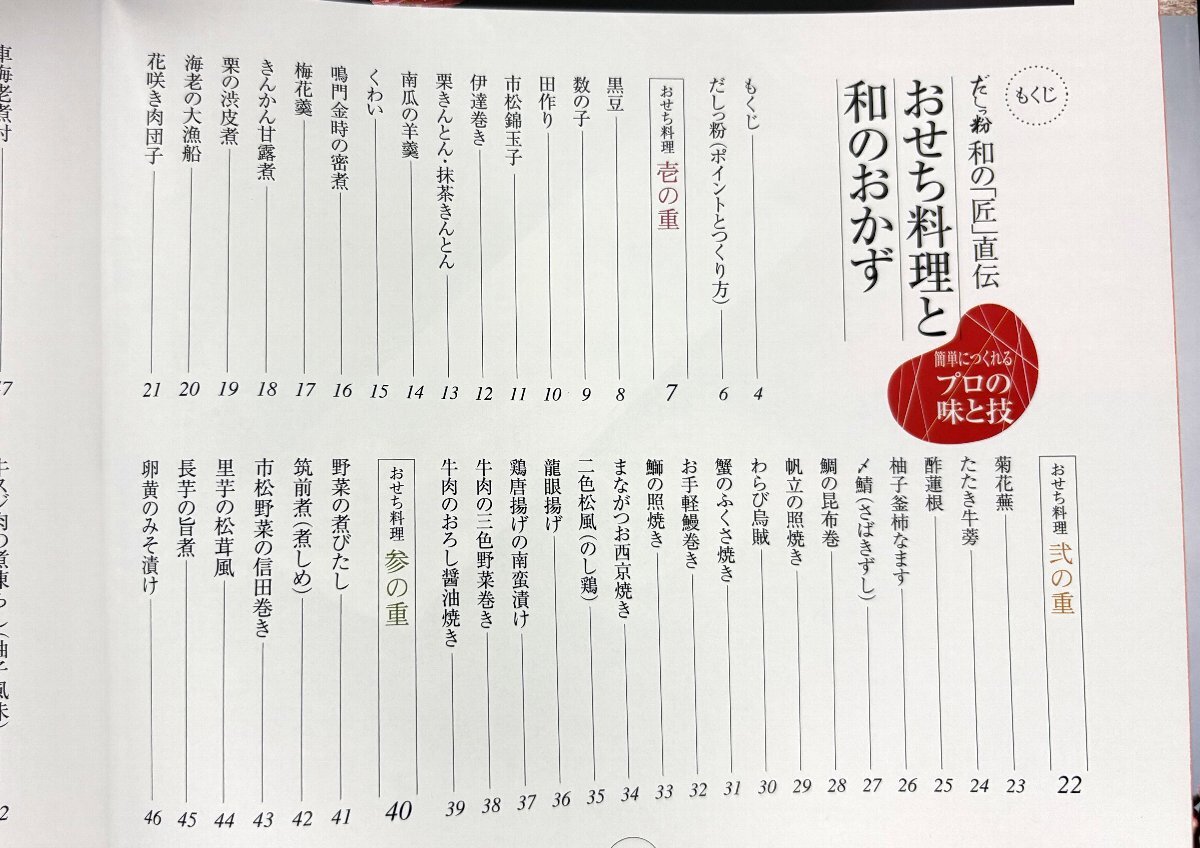 もくじ
だしっ粉 和の「匠」直伝
おせち料理と
和のおかず
簡単につくれる
プロの
味と技
もくじ 4
だしっ粉(ポイントとつくり方) 6
おせち料理 壱の重 7
黒豆 8
数の子 9
田作り 10
市松錦玉子 11
伊達巻き 12
栗きんとん・抹茶きんとん 13
南瓜の羊羹 14
くわい 15
鳴門金時の密煮 16
梅花羹 17
きんかん甘露煮 18
栗の渋皮煮 19
海老の大漁船 20
花咲き肉団子 21
おせち料理 弐の重 22
菊花蕪 23
たたき牛蒡 24
酢蓮根 25
柚子釜柿なます 26
〆鯖(さばきずし) 27
鯛の昆布巻 28
帆立の照焼き 29
わらび烏賊 30
蟹のふくさ焼き 31
お手軽鰻巻き 32
鰤の照焼き 33
まながつお西京焼き 34
二色松風(のし鶏) 35
龍眼揚げ 36
鶏唐揚げの南蛮漬け 37
牛肉の三色野菜巻き 38
牛肉のおろし醤油焼き 39
おせち料理 参の重 40
野菜の煮びたし 41
筑前煮(煮しめ) 42
市松野菜の信田巻き 43
里芋の松茸風 44
長芋の旨煮 45
卵黄のみそ漬け 46
車海老煮付